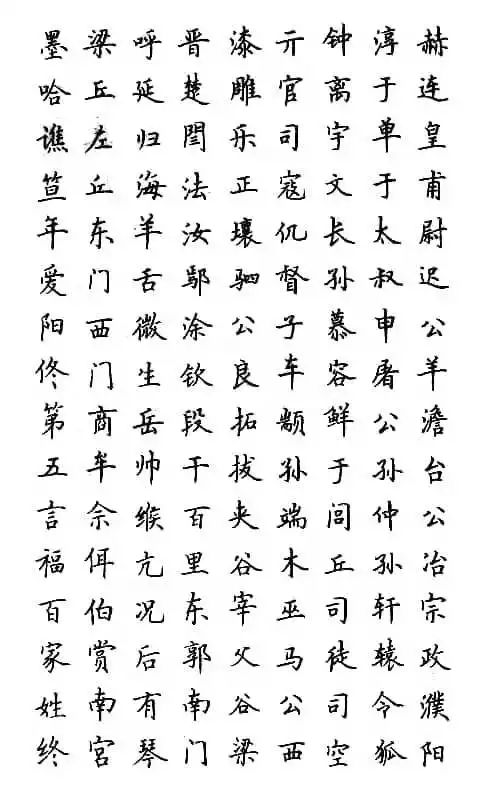 赫连皇甫尉迟公羊澹台公冶宗政濮阳
淳于单于太叔申屠公孙仲孙轩辕令狐
钟离宇文长孙慕容鲜于闾丘司徒司空
亓官司寇仉督子车颛孙端木巫马公西
漆雕乐正壤驷公良拓拔夹谷宰父谷梁
晋楚閆法汝鄢涂钦段干百里东郭南门
呼延归海羊舌微生岳帅缑亢况后有琴
梁丘左丘东门西门商牟佘佴伯赏南宫
墨哈谯笪年爱阳佟第五言福百家姓终